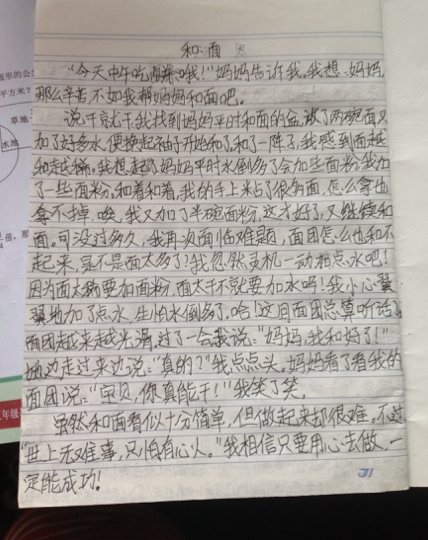 和面
"今天中午吃 哦!"妈妈告诉我。我想:妈妈
那么辛苦不如我帮妈妈和面吧。
说干就干,我找到妈妈平时和面的盆,放了两碗面又
加了好多水,便挽起袖子开始和了,和了一阵子,我感到面越
和越稀。我想起了妈妈平时水倒多了会加些面粉,我加
了一些面粉,和着和着,我的手上粘了很多面,怎么拿也
拿不掉,唉,我又加了半碗面粉,这才好了,又继续和
面。可没过多久,我再次面临难题,面团怎么也和不
起来,是不是面太多了?我忽然灵机一动加点水吧!
因为面太稀要加面粉,面太干不就要加水吗!我小心翼
翼地加了点水,生怕水倒多了,哈!这百面团总算听话了
面团越来越光滑,过了一会我说:"妈妈,我和好了!"
她边走过来边说:"真的?"我点点头。妈妈看了看我的
面团说:"宝贝,你真能干!"我笑了笑。
虽然和面看似十分简单,但做起来却很难。不过
"世上无难事,只怕有心人。"我相信只要用心去做,一
定能成功!
草地
水池
年级